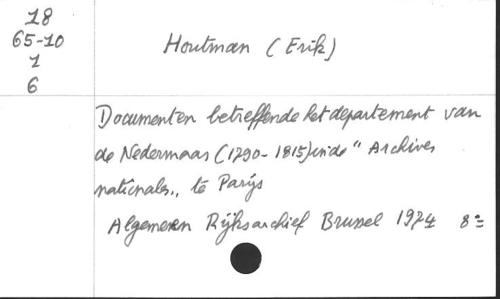 18
65-10
1
6
Houtman (Erik)
Documenten betreffende het departement van
de Nedermaas (1790-1815) in de "Archives
nationales„ te Parijs
Algemeen Rijksarchief Brussel 1974 8º